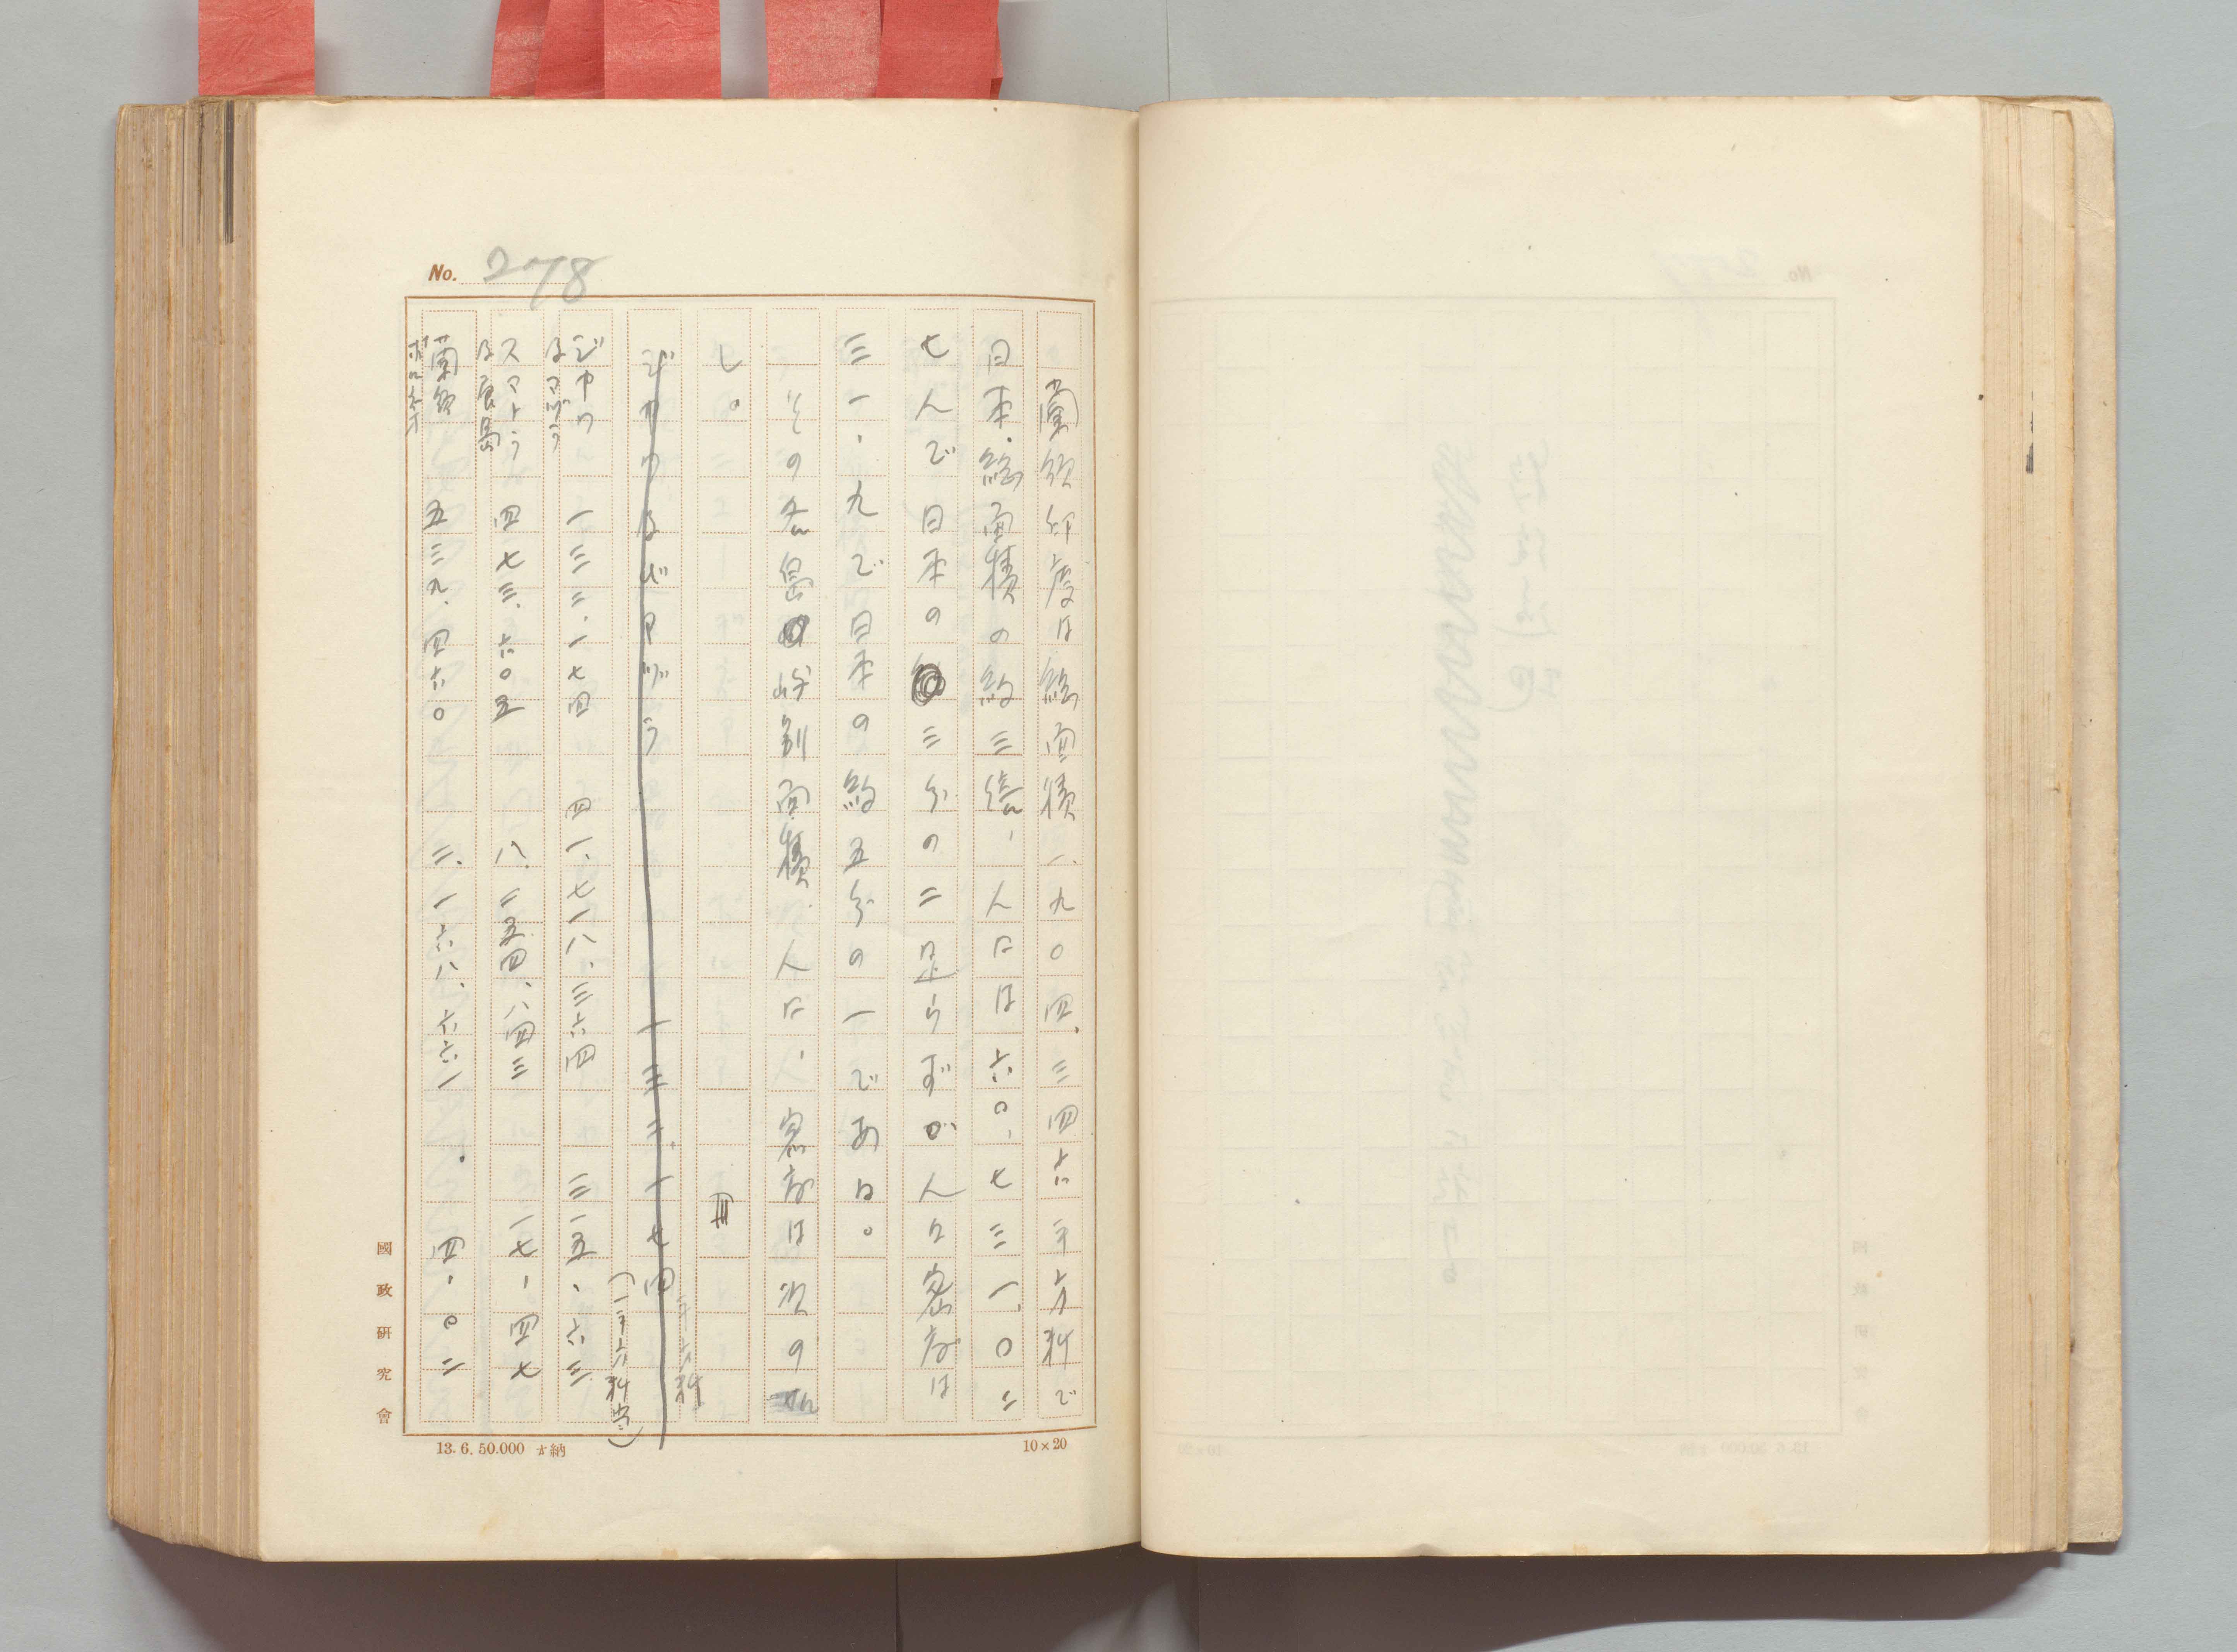 No. 278
蘭領印度は総面積一、九〇四、三四六平方粁で
日本総面積の約三倍、人口は六〇、七三一、〇二
七人で日本の三分の二足らずが人口密度は
三一、九で日本の約五分の一である。
その各島別面積、人口、密度は次の如
し。
ジャワ及びマヅラ 一三二、一七四 平方粁
(一平方粁当)
ジャワ及マヅラ 一三二、一七四 四一、七一八、三六四 三一五、六三
スマトラ及属島 四七三、六〇五 八、二五四、八四三 一七、四七
蘭領ボルネオ 五三九、四六〇 二、一六八、六六一 四、〇二
國政研究會
13.6.50.000 納
10×20